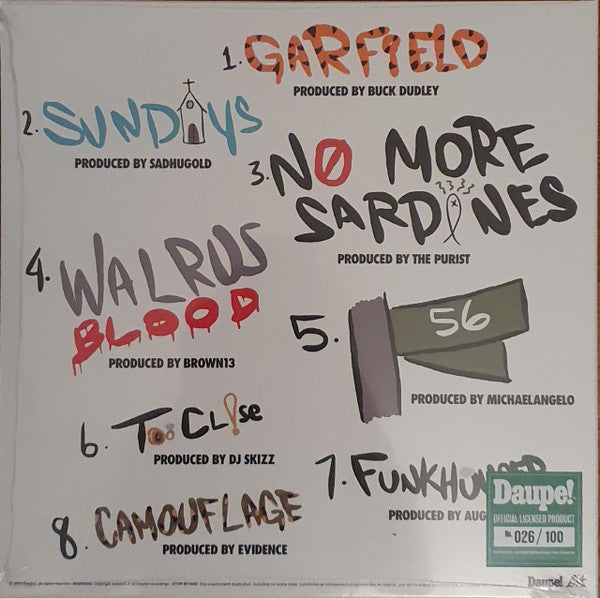 1. GARFIELD
PRODUCED BY BUCK DUDLEY
2. SUNDAYS
PRODUCED BY SADHUGOLD
3. NO MORE
SARDINES
PRODUCED BY THE PURIST
4. WALRUS
BLOOD
PRODUCED BY BROWN13
5. 56
PRODUCED BY MICHAELANGELO
6. Too Close
PRODUCED BY DJ SKIZZ
7. FUNKHOUSER
PRODUCED BY AUG
8. CAMOUFLAGE
PRODUCED BY EVIDENCE
Daupe!
OFFICIAL LICENSED PRODUCT
No. 026 / 100
Daupe!